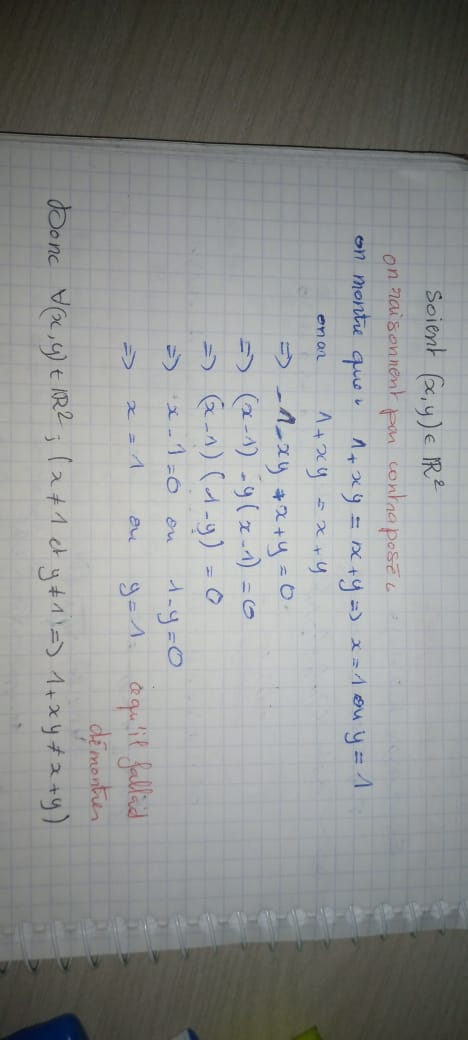 Soient (x,y) ∈ ℝ²
on raisonnent par contraposé :
on montre que : 1 + xy = x + y ⇒ x = 1 ou y = 1
on a
1 + xy = x + y
⇒ -1 - xy + x + y = 0.
⇒ (x-1) - y(x-1) = 0
⇒ (x-1)(1-y) = 0
⇒ x - 1 = 0 ou 1 - y = 0
⇒ x = 1 ou y = 1. ce qu'il fallait
démontrer
Donc ∀(x,y) ∈ ℝ² ; (x ≠ 1 et y ≠ 1 ⇒ 1 + xy ≠ x + y)